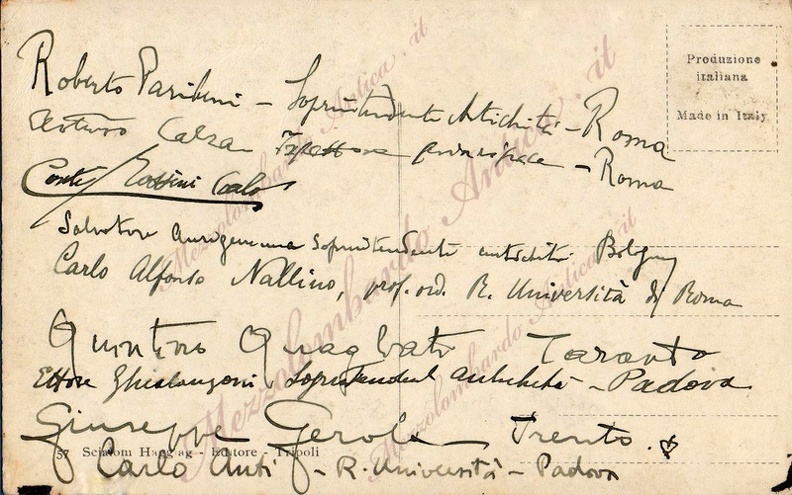 Produzione
italiana
Made in Italy
Roberto Paribeni - Soprintendente Antichità - Roma
Arturo Calza Ispettore principale - Roma
Conti Rossini Carlo
Salvatore Aurigemma Soprintendente antichità Bologna
Carlo Alfonso Nallino, prof. ord. R. Università di Roma
Quintino Quagliati Taranto
Ettore Ghislanzoni Soprintendente Antichità - Padova
Giuseppe Gerola Trento
57 Scialom Haggiag - Editore - Tripoli
Carlo Anti - R. Università - Padova
Mezzolombardo Antica.it
Mezzolombardo Antica.it
Mezzolombardo Antica.it